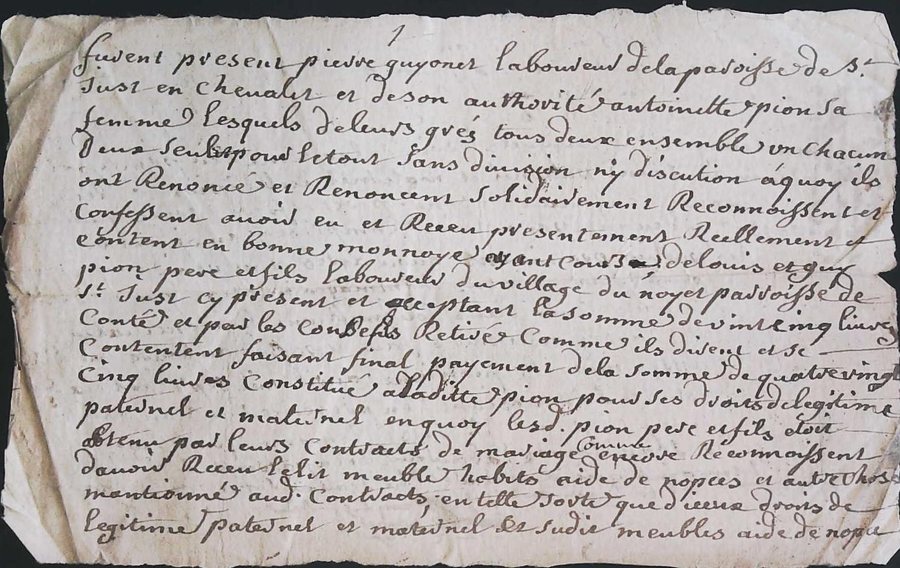 1
furent present pierre guyonet laboureur de la paroisse de St
Just en Chevalet et de son authorité antoinette pion sa
femme lesquels de leurs grés tous deux ensemble un chacun
Deux seul et pour le tout sans division ny discution a quoy ils
ont Renoncé et Renoncent solidairement Reconnoissent et
Confessent avoir eu et Receu presentement Reellement et
content en bonne monnoye ayant cours de louis et guy
pion pere et fils laboureur du village du noyet parroisse de
St Just cy present et acceptant la somme de vint cinq livres
Conté et par les Confess Retiré Comme ils disent et se
Contentent faisant final payement de la somme de quatre vingt
Cinq livres Constitué a laditte pion pour ses droits de legitime
paternel et maternel en quoy lesd. pion pere et fils etoit
obtenu par leurs Contracts de mariage Comme encore Reconnoissent
davoir Receu le lit meuble habits aide de nopces et autre chose
mantionné aud. Contracts en telle sorte que diceux droits de
legitime paternel et maternel et sudit meubles aide de nopce